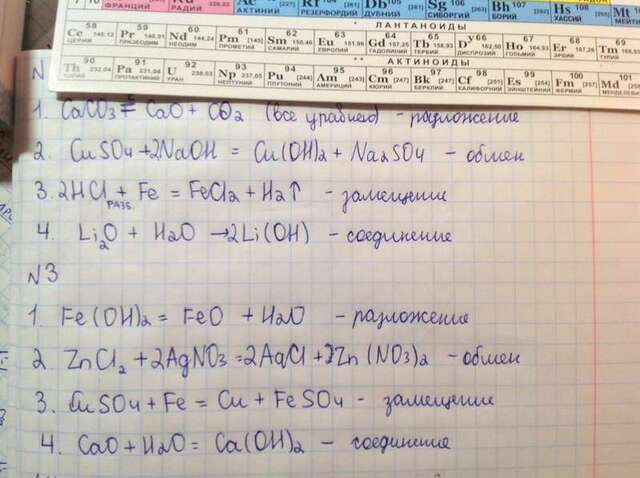 ФРАНЦИЙ РАДИЙ АКТИНИЙ РЕЗЕРФОРДИЙ Db 105 [262] ДУБНИЙ Sg 106 СИБОРГИЙ Bh 107 БОРИЙ Hs 108 ХАССИЙ Mt
* ЛАНТАНОИДЫ
58 59 60 61 62 63 64 65 66 67 68 69
Ce 140,12 Pr 140,91 Nd 144,24 Pm [145] Sm 150,36 Eu 151,96 Gd 157,25 Tb 158,93 Dy 162,50 Ho 164,93 Er 167,26 Tm
ЦЕРИЙ ПРАЗЕОДИМ НЕОДИМ ПРОМЕТИЙ САМАРИЙ ЕВРОПИЙ ГАДОЛИНИЙ ТЕРБИЙ ДИСПРОЗИЙ ГОЛЬМИЙ ЭРБИЙ ТУЛИЙ
** АКТИНОИДЫ
90 91 92 93 94 95 96 97 98 99 100 101
Th 232,04 Pa 231,04 U 238,03 Np 237,05 Pu [244] Am [243] Cm [247] Bk [247] Cf [251] Es [252] Fm [257] Md
ТОРИЙ ПРОТАКТИНИЙ УРАН НЕПТУНИЙ ПЛУТОНИЙ АМЕРИЦИЙ КЮРИЙ БЕРКЛИЙ КАЛИФОРНИЙ ЭЙНШТЕЙНИЙ ФЕРМИЙ
N
1. CaCO3 = CaO + CO2 (все уравнено) - разложение
2. CuSO4 + 2NaOH = Cu(OH)2 + Na2SO4 - обмен
3. 2HCl РАЗБ. + Fe = FeCl2 + H2↑ - замещение
4. Li2O + H2O → 2Li(OH) - соединение
N3
1. Fe(OH)2 = FeO + H2O - разложение
2. ZnCl2 + 2AgNO3 = 2AgCl + Zn(NO3)2 - обмен
3. CuSO4 + Fe = Cu + FeSO4 - замещение
4. CaO + H2O = Ca(OH)2 - соединение